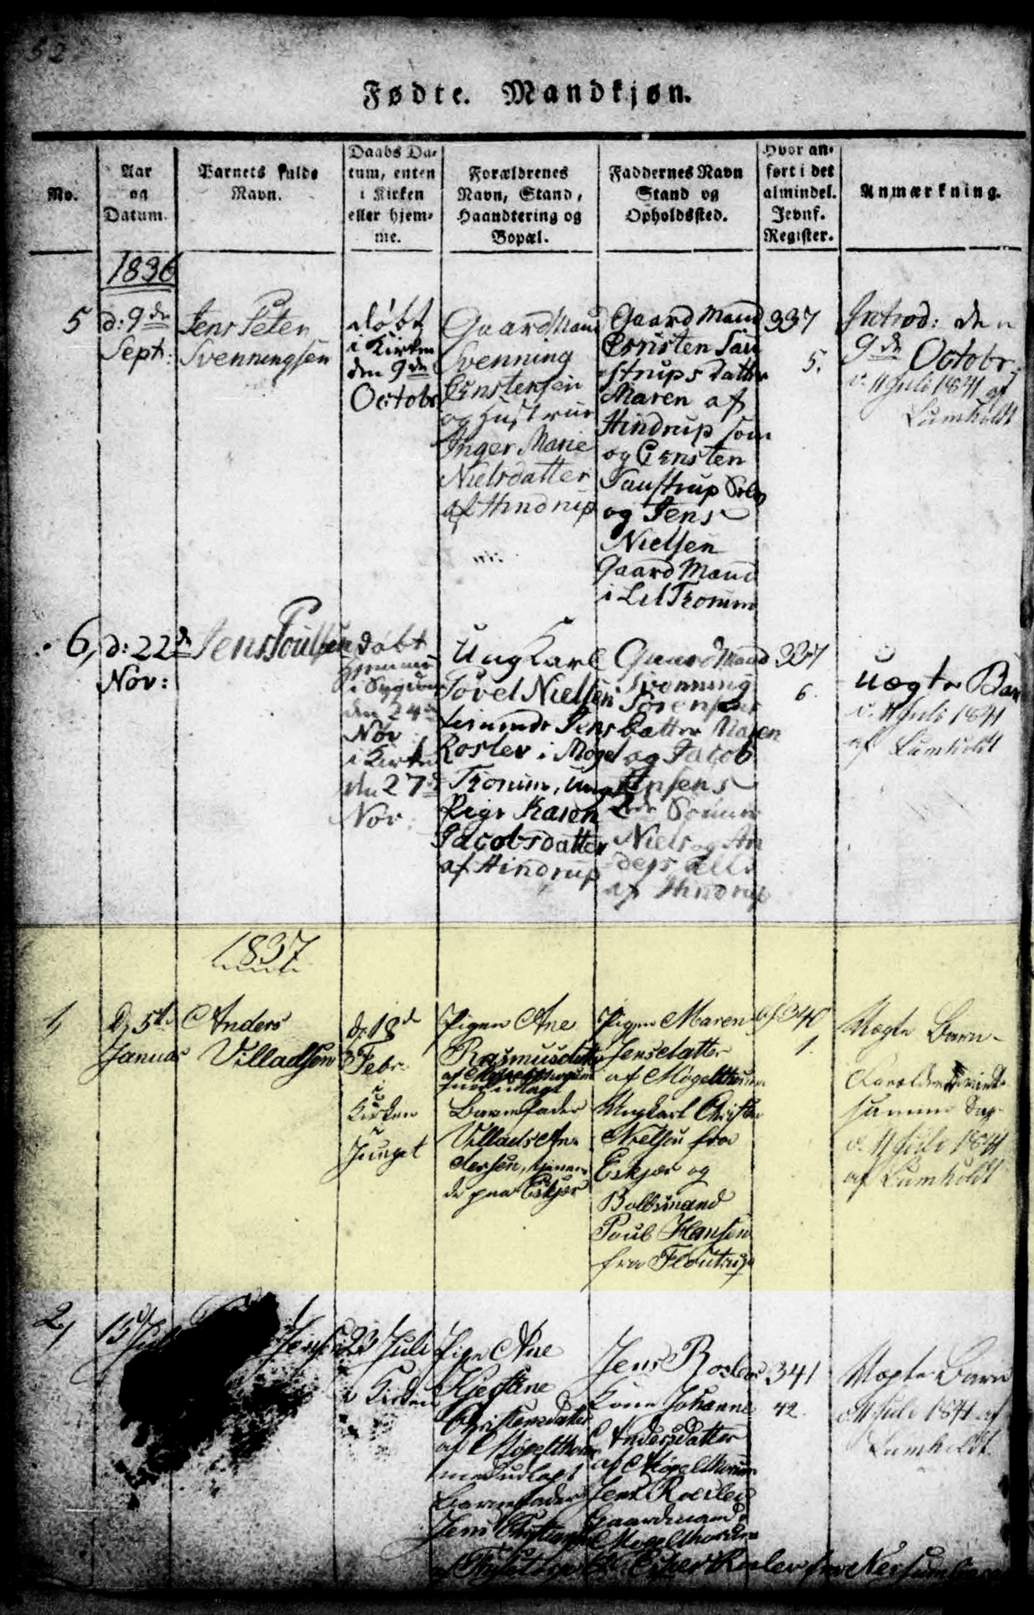 52
Fødte. Mandkjøn.
No.
Aar
og
Datum.
Barnets fulde
Navn.
Daabs Da-
tum, enten
i Kirken
eller hjem-
me.
Forældrenes
Navn, Stand,
Haandtering og
Bopæl.
Faddernes Navn
Stand og
Opholdssted.
Hvor an-
ført i det
almindel.
Jevnf.
Register.
Anmærkning.
1836
5
d: 9de
Sept:
Jens Peter
Svenningsen
døbt
i Kirken
den 9de
Octobr
Gaard Mand
Svenning
og Hustrue
Inger Marie
Nielsdatter
af Hindrup
Gaard Mand
Datter
Maren af
Hindrup som
og
Taustrup
og Jens
Nielsen
Gaard Mand
i Lil Tromm
337
5.
Introd: den
9de Octobr.
v. 11 Juli 1841 af
Lumholdt
6,
d: 22de
Nov:
Jens Poulsen
døbt
den 24de
Nov
i Kirken
den 27de
Nov:
Ung Karl
Povel Nielsen
tienende Jens
Rosler i Møgel
Tromm, Ung
Pige Karen
Jacobsdatter
af Hindrup
Gaard Mand
Svenning
Sørensens
Datter Maren
og Jacob
Sønner
Niels og An
ders alle
af Hindrup
337
6.
Uægte Barn
v. 11 Juli 1841
af Lumholdt
1837
1,
D. 5te
Januar
Anders
Villadsen
d: 18de
Febr.
i
Kirken
Junget
Pigen Ane
Rasmusdatter
udlagt
Barnefader
Villads An-
dersen, tienen-
de paa Eskjær
Pigen Maren
Jensdatter
af Møgelthorum
Ungkarl Christen
Nielsen fra
Eskjær og
Bolsmand
Poul Hansen
fra Floutrup
340
1.
Uægte Barn
samme Dag
v. 11 Juli 1841
af Lumholdt
2,
15 Juli
Jensen
23 Juli
i Kirken
Pige Ane
Kjerstine
Christensdatter
af Møgelthorum
udlagt
Barnefader
Jens
Jens Roslers
Kone Johanne
Andersdatter
af Møgelthorum
Jens Rosler
Gaardmand
Møgelthorum
341
42.
Uægte Barn
v. 11 Juli 1841 af
Lumholdt